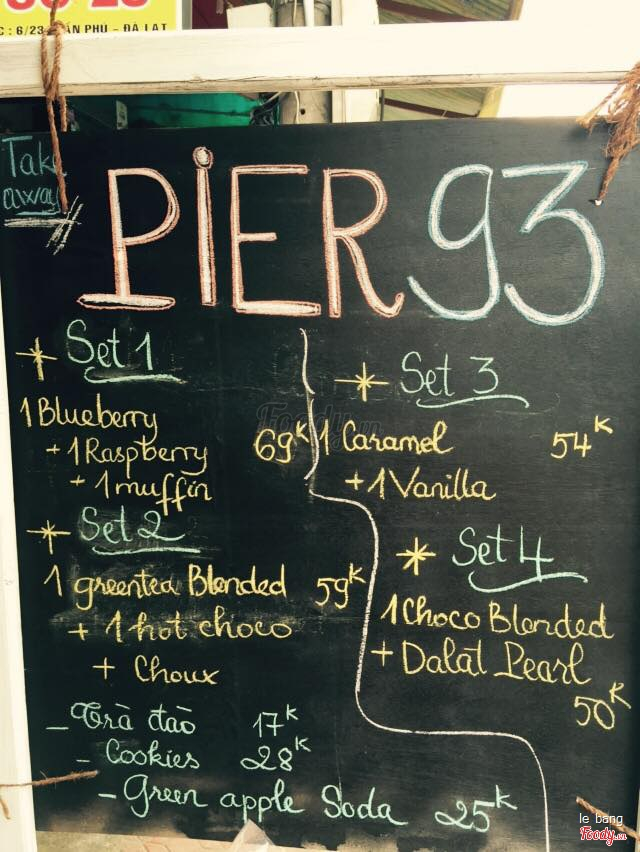 : 6/23 TRẦN PHÚ - ĐÀ LẠT
Take away
PiER 93
Set 1
1 Blueberry
+ 1 Raspberry 69K
+ 1 muffin
Set 2
1 greentea Blended 59K
+ 1 hot choco
+ Choux
Set 3
1 Caramel 54K
+ 1 Vanilla
Set 4
1 Choco Blended
+ Dalat Pearl
50K
- Trà đào 17K
- Cookies 28K
- Green apple Soda 25K
Foody.vn
le bang
Foody.vn